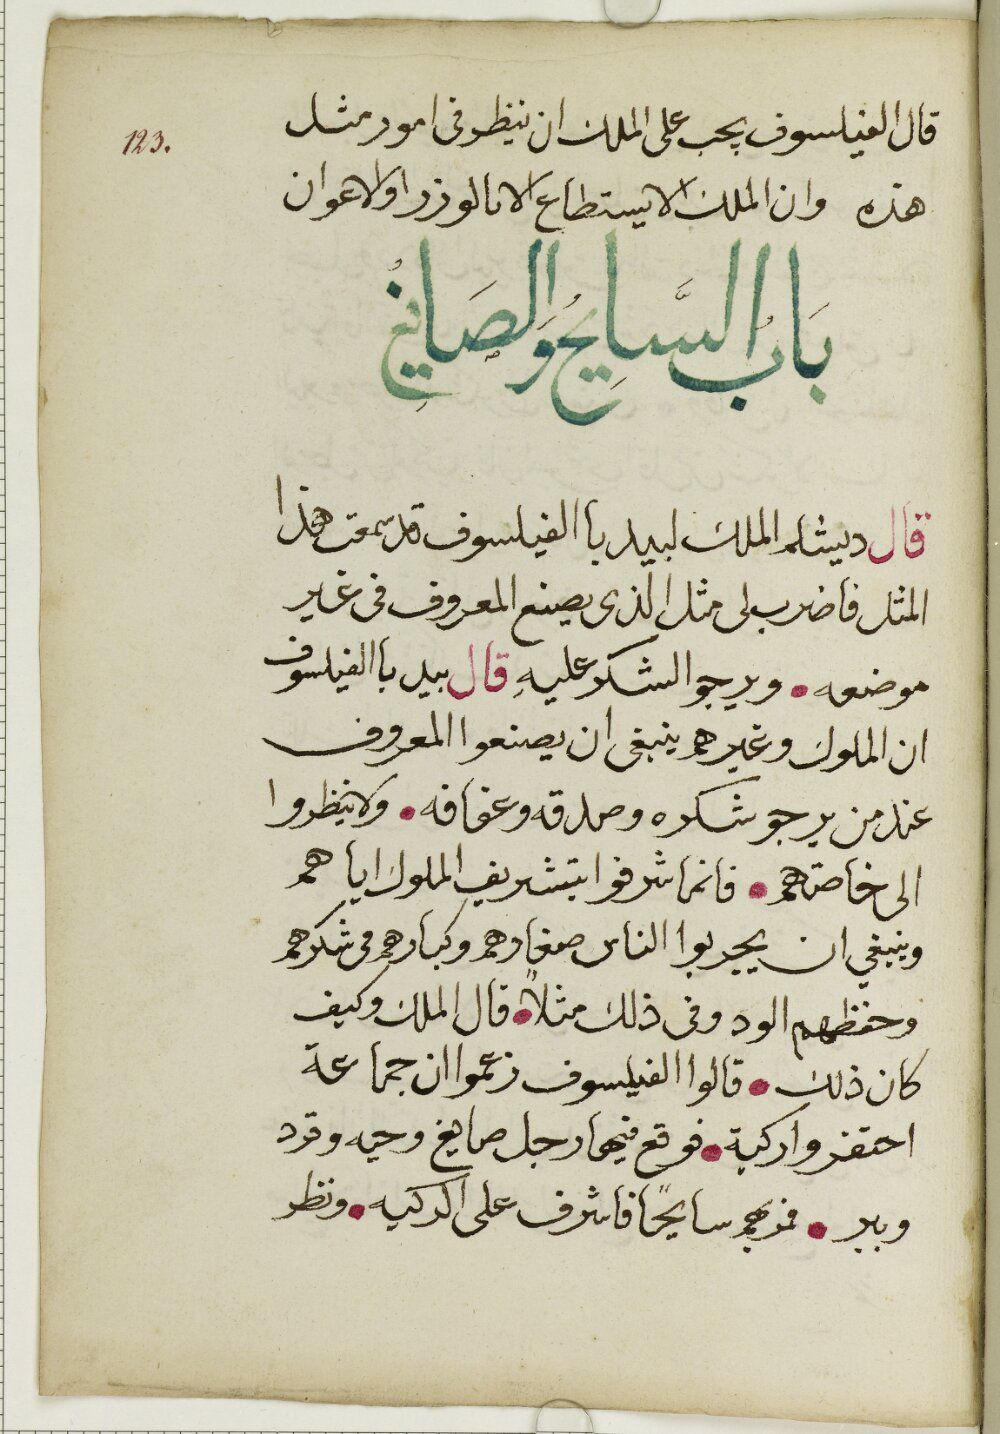 123.
قال الفيلسوف يجب على الملك ان ينظر فى امور مثل
هذه وان الملك لا يستطاع الا بالوزرا والاعوان
بَابُ السَّايِحُ وَالصَايغُ
قال ديشلم الملك لبيدبا الفيلسوف قد سمعت هذا
المثل فاضرب لى مثل الذى يصنع المعروف فى غير
موضعه • ويرجوا الشكر عليهِ قال بيدبا الفيلسوف
ان الملوك وغيرهم ينبغى ان يصنعوا المعروف
عند من يرجو شكره وصدقه وعفافه • ولا ينظروا
الى خاصتهم • فانما شرفوا بتشريف الملوك اياهم
وينبغي ان يجربوا الناس صغارهم وكبارهم فى شكرهم
وحفظهم الود وفى ذلك مثلاً • قال الملك وكيف
كان ذلك • قالوا الفيلسوف زعموا ان جماعة
احتفروا ركية • فوقع فيها رجل صايغ وحيه وقرد
وببر • فمر بهم سايحًا فاشرف على الركيه • ونظر